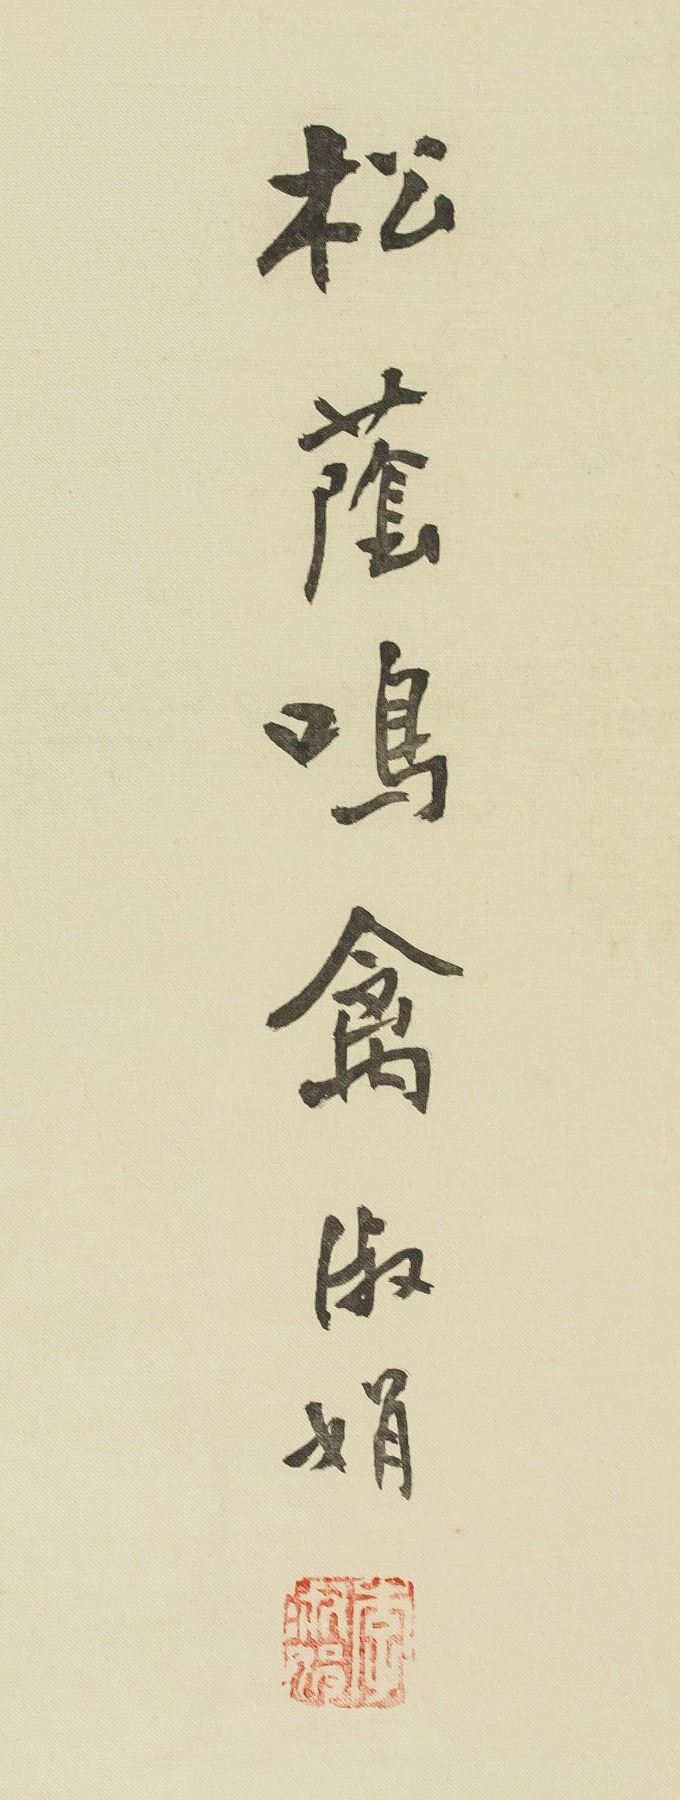 松蔭鳴禽淑娟